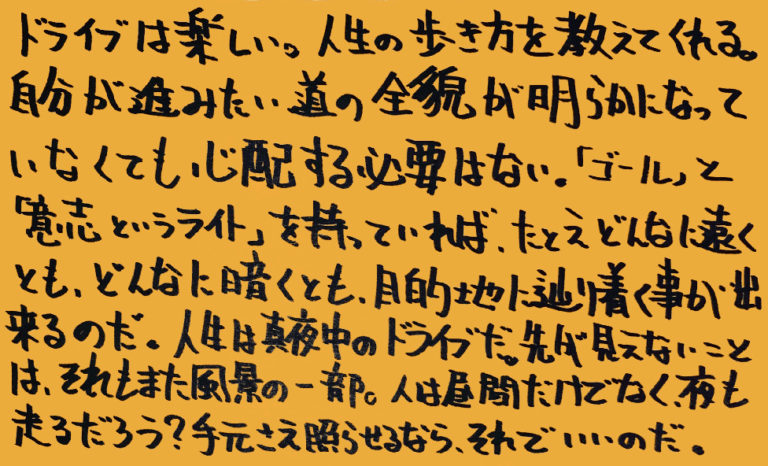 ドライブは楽しい。人生の歩き方を教えてくれる。
自分が進みたい道の全貌が明らかになって
いなくても心配する必要はない。「ゴール」と
「意志というライト」を持っていれば、たとえどんなに遠く
とも、どんなに暗くとも、目的地に辿り着く事が出
来るのだ。人生は真夜中のドライブだ。先が見えないこと
は、それもまた風景の一部。人は昼間だけでなく、夜も
走るだろう？手元さえ照らせるなら、それでいいのだ。